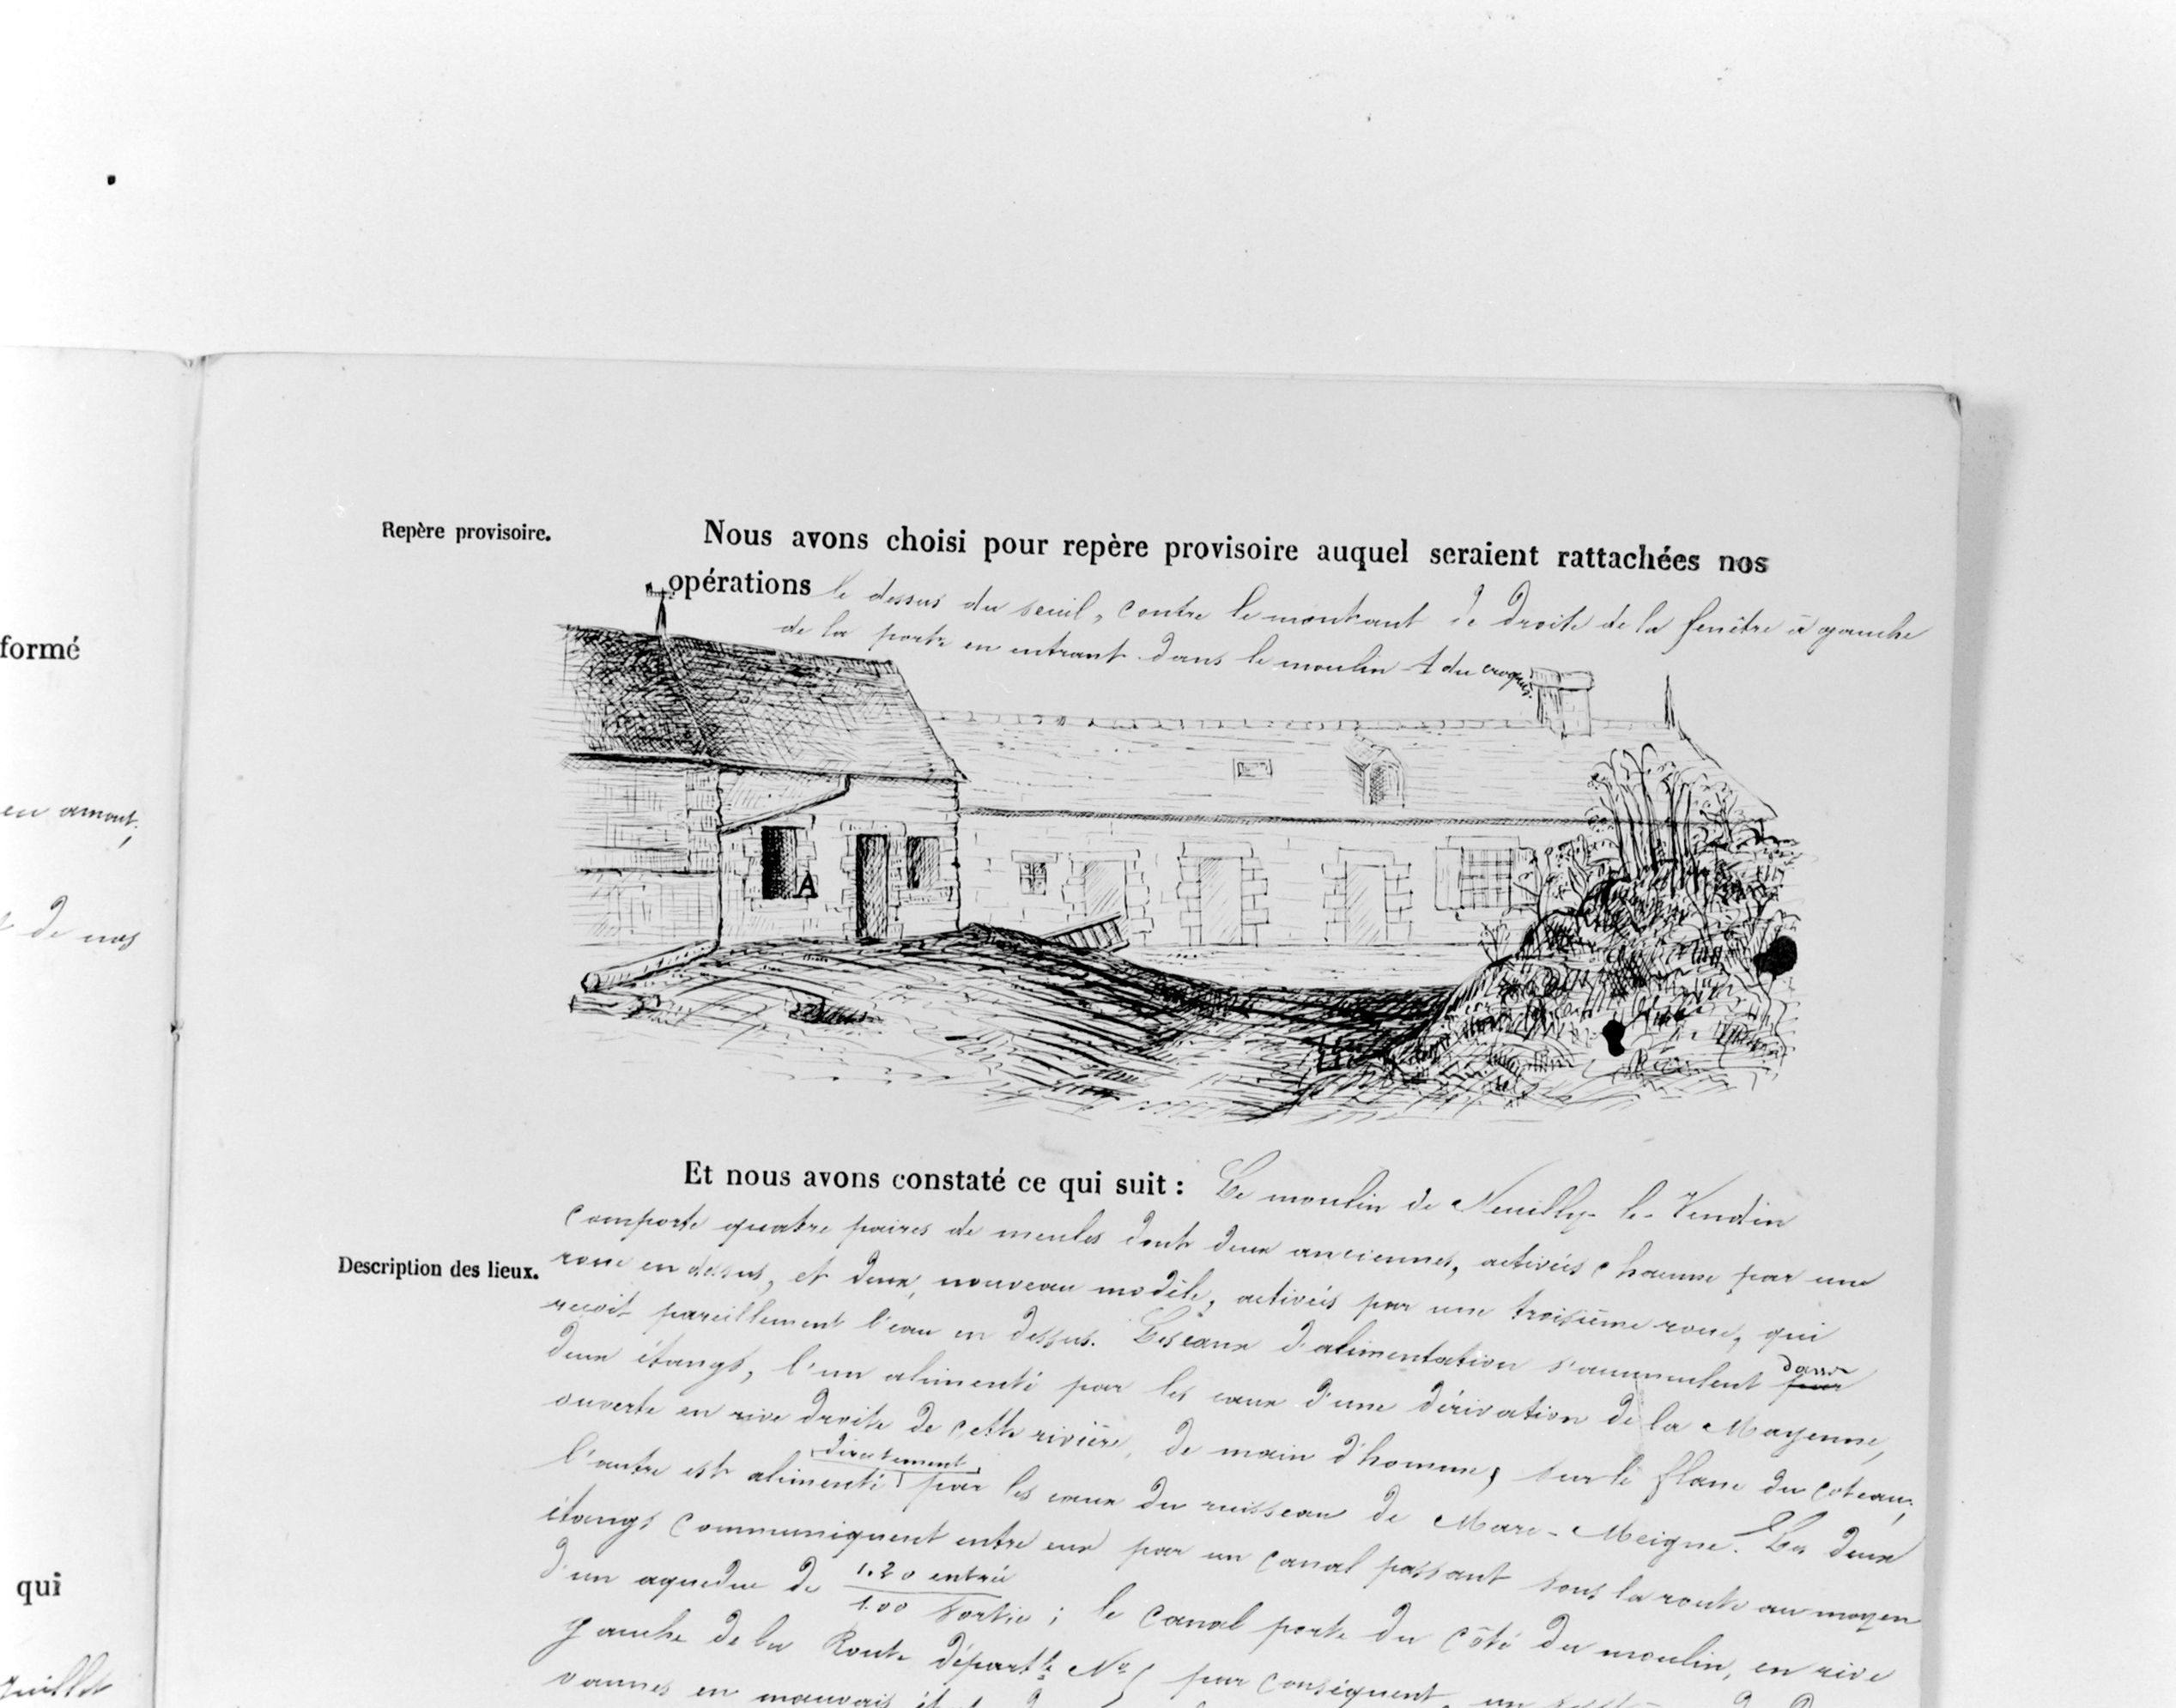 formé
en amont,
de nos
qui
Repère provisoire.
Nous avons choisi pour repère provisoire auquel seraient rattachées nos
opérations le dessus du seuil, contre le montant de droite de la fenêtre à gauche
de la porte en entrant dans le moulin A du croquis.
A
Et nous avons constaté ce qui suit : Le moulin de Neuilly-le-Vendin
Description des lieux.
comporte quatre paires de meules dont deux anciennes, activées chacune par une
roue en dessus, et deux, nouveau modèle, activées par une troisième roue, qui
reçoit pareillement l'eau en dessus. Les eaux d'alimentation s'accumulent par dans
deux étangs, l'un alimenté par les eaux d'une dérivation de la Mayenne,
ouverte en rive droite de cette rivière, de main d'homme, sur le flanc du coteau;
l'autre est alimenté directement par les eaux du ruisseau de Mare-Meigne. Les deux
étangs communiquent entre eux par un canal passant sous la route au moyen
d'un aqueduc de 1.20 entrée
1.00 sortie ; le canal porte du côté du moulin, en rive
gauche de la Route départle No par conséquent, un
vannes en mauvais